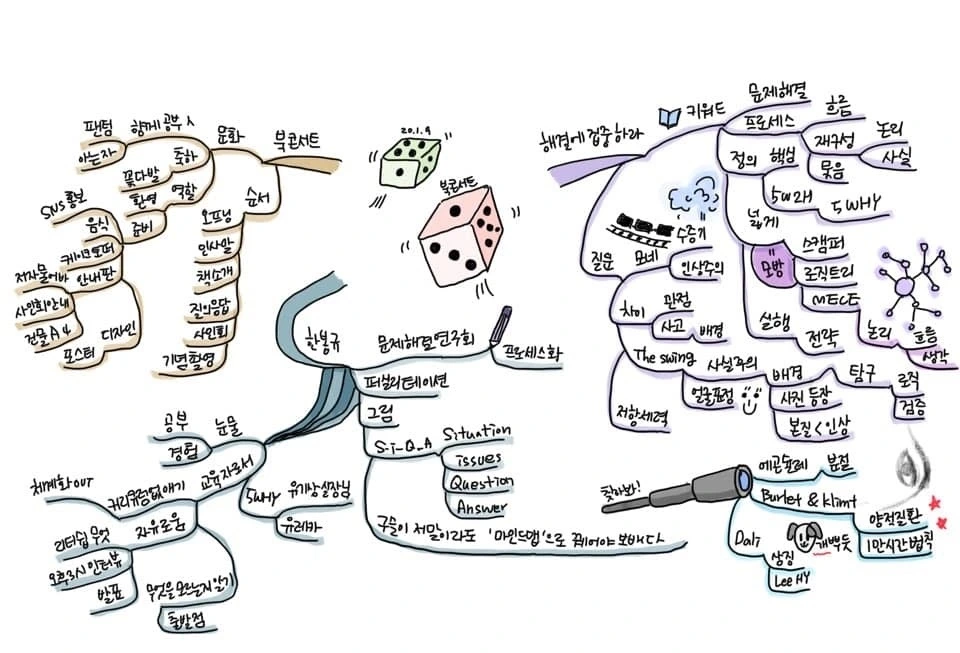 20.1.9
북콘서트
북콘서트
문화
함께 공부
팬텀
아는자
축하
꽃다발
역할
환영
준비
SNS 홍보
음식
케이크토퍼
안내판
저자물어봐
사인회안내
건물 A4
디자인
포스터
순서
오프닝
인사말
책소개
질의응답
사인회
기념촬영
해결에 집중하라
키워드
문제해결
프로세스
흐름
재구성
논리
묶음
사실
정의
핵심
5W2H
5WHY
넓게
모방
스캠퍼
로직트리
MECE
논리
흐름
생각
실행
전략
질문
모네
수증기
인상주의
차이
관점
사고
배경
The swing
사실주의
얼굴표정
배경
탐구
로직
검증
사진 등장
본질 < 인상
저항세력
한봉규
문제해결연구회
프로세스화
퍼실리테이션
그림
S-i-Q-A
Situation
issues
Question
Answer
구슬이 서말이라도 '마인드맵'으로 꿰어야 보배다
교육자로서
눈물
공부
경험
5WHY
유기상실장님
유레카
커리큐럼없애기
체계화 out
자유로운
리더쉽 무엇
오후3시 인터뷰
발표
무엇을 모르는지 알기
출발점
찾아봐!
에곤쉴레
분절
Burlet & Klimt
양적질환
1만시간 법칙
Dali
상징
개뿍듯
Lee HY